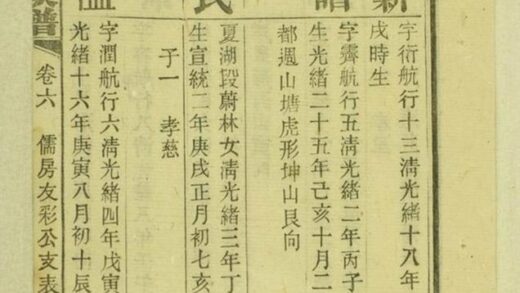 新譜氏
字衍航行十三淸光緒十八年
戌時生
字霽航行五淸光緒二年丙子
生光緒二十五年己亥十月二
都週山塘虎形坤山艮向
夏湖段蔚林女淸光緒三年丁
生宣統二年庚戌正月初七亥
子一 孝慈
字潤航行六淸光緒四年戊寅
光緒十六年庚寅八月初十辰
族譜 卷六 儒房友彩公支表